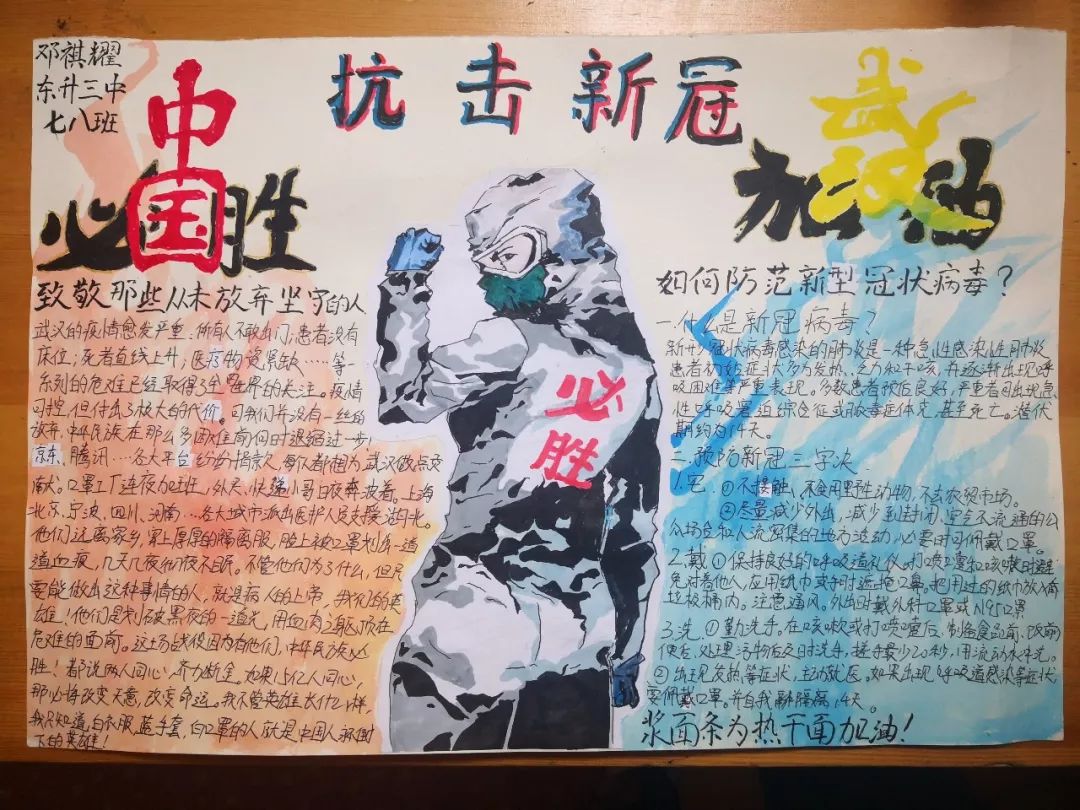 邓祺耀
东升三中
七八班
抗击新冠
中国
必胜
武汉
加油
必胜
致敬那些从未放弃坚守的人
武汉的疫情愈发严重:所有人不敢出门;患者没有
床位;死者直线上升;医疗物资紧缺……等一
系列的危难已经取得了全世界的关注。疫情
可控,但付出了极大的代价。可我们并没有一丝的
放弃,中华民族在那么多困难前何时退缩过一步!
京东、腾讯……各大平台纷纷捐款,每个人都想为武汉做点交
献。口罩工厂连夜加班,外卖、快递小哥日夜奔波着。上海
北京、宁波、四川、河南……各大城市派出医护人员支援湖北。
他们远离家乡,穿上厚厚的隔离服,脸上被口罩利伤一道
道血痕,几天几夜彻夜不眠。不管他们为了什么,但只
要能做出这种事情的人,就是病人的上帝,我们的英
雄!他们是刺破黑夜的一道光,用血肉之躯顶在
危难的面前。这场战役因为有他们,中华民族必
胜!都说两人同心,齐力断金。如果14亿人同心,
那必将改变天意,改变命运。我不管英雄长什么样,
我只知道,白衣服,蓝手套,白口罩的人就是中国人
下的英雄!
如何防范新型冠状病毒?
一.什么是新冠病毒?
新型冠状病毒感染的肺炎是一种急性感染性肺炎
患者初始症状多为发热、乏力和干咳,并逐渐出现呼
吸困难等严重表现。多数患者预后良好,严重者可出现急
性呼吸窘迫综合征或脓毒症休克,甚至死亡。潜伏
期约为14天。
二.预防新冠三字决
1.宅.①不接触,不食用野生动物,不去农贸市场。
②尽量减少外出,减少到封闭,空气不流通的公
众场合和人流密集的地方活动,必要时可佩戴口罩。
2.戴①保持良好的呼吸道礼仪,打喷嚏和咳嗽时避
免对着他人,应用纸巾或手肘遮掩口鼻。把用过的纸巾放入
垃圾桶内。注意通风。外出时戴外科口罩或N95口罩
3.洗.①勤洗手。在咳嗽或打喷嚏后,制备食品前,饭前
便后,处理污物后及时洗手,搓手最少20秒,用流动水冲洗。
②出现发热等症状,主动就医。如果出现呼吸道感染等症状,
要佩戴口罩。并自我隔离14天。
浆面条为热干面加油!